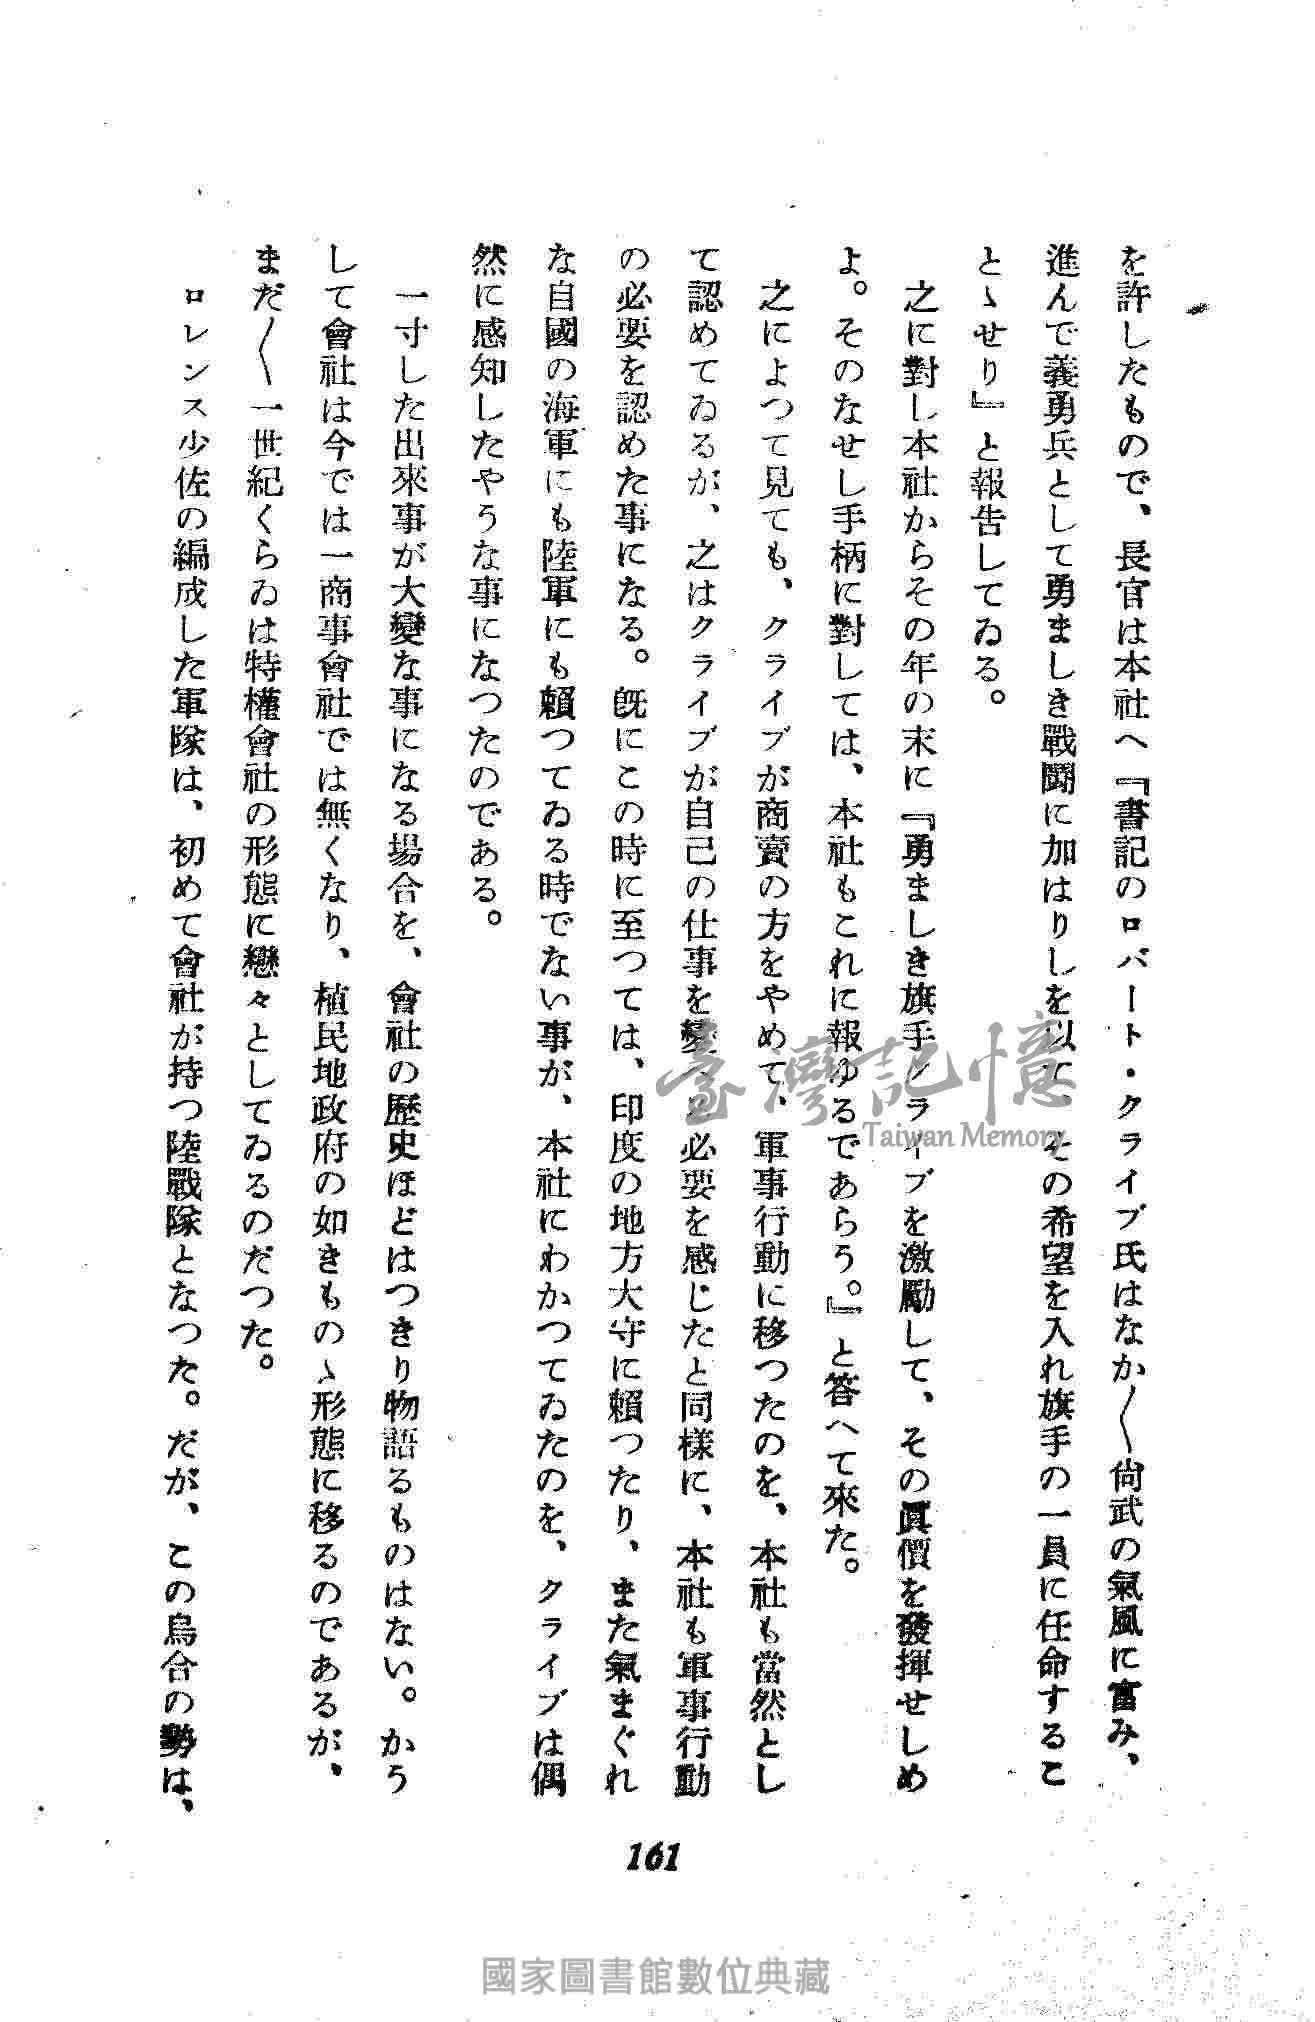 を許したもので、長官は本社へ『書記のロバート・クライブ氏はなか〱尙武の氣風に富み、
進んで義勇兵として勇ましき戰鬪に加はりしを以て、その希望を入れ旗手の一員に任命するこ
とゝせり』と報告してゐる。
之に對し本社からその年の末に『勇ましき旗手クライブを激勵して、その眞價を發揮せしめ
よ。そのなせし手柄に對しては、本社もこれに報ゆるであらう。』と答へて來た。
之によつて見ても、クライブが商賣の方をやめて、軍事行動に移つたのを、本社も當然とし
て認めてゐるが、之はクライブが自己の仕事を變へる必要を感じたと同樣に、本社も軍事行動
の必要を認めた事になる。旣にこの時に至つては、印度の地方大守に賴つたり、また氣まぐれ
な自國の海軍にも陸軍にも賴つてゐる時でない事が、本社にわかつてゐたのを、クライブは偶
然に感知したやうな事になつたのである。
一寸した出來事が大變な事になる場合を、會社の歷史ほどはつきり物語るものはない。かう
して會社は今では一商事會社では無くなり、植民地政府の如きものゝ形態に移るのであるが、
まだ〱一世紀くらゐは特權會社の形態に戀々としてゐるのだつた。
ロレンス少佐の編成した軍隊は、初めて會社が持つ陸戰隊となつた。だが、この烏合の勢は、
161
臺灣記憶
Taiwan Memory
國家圖書館數位典藏